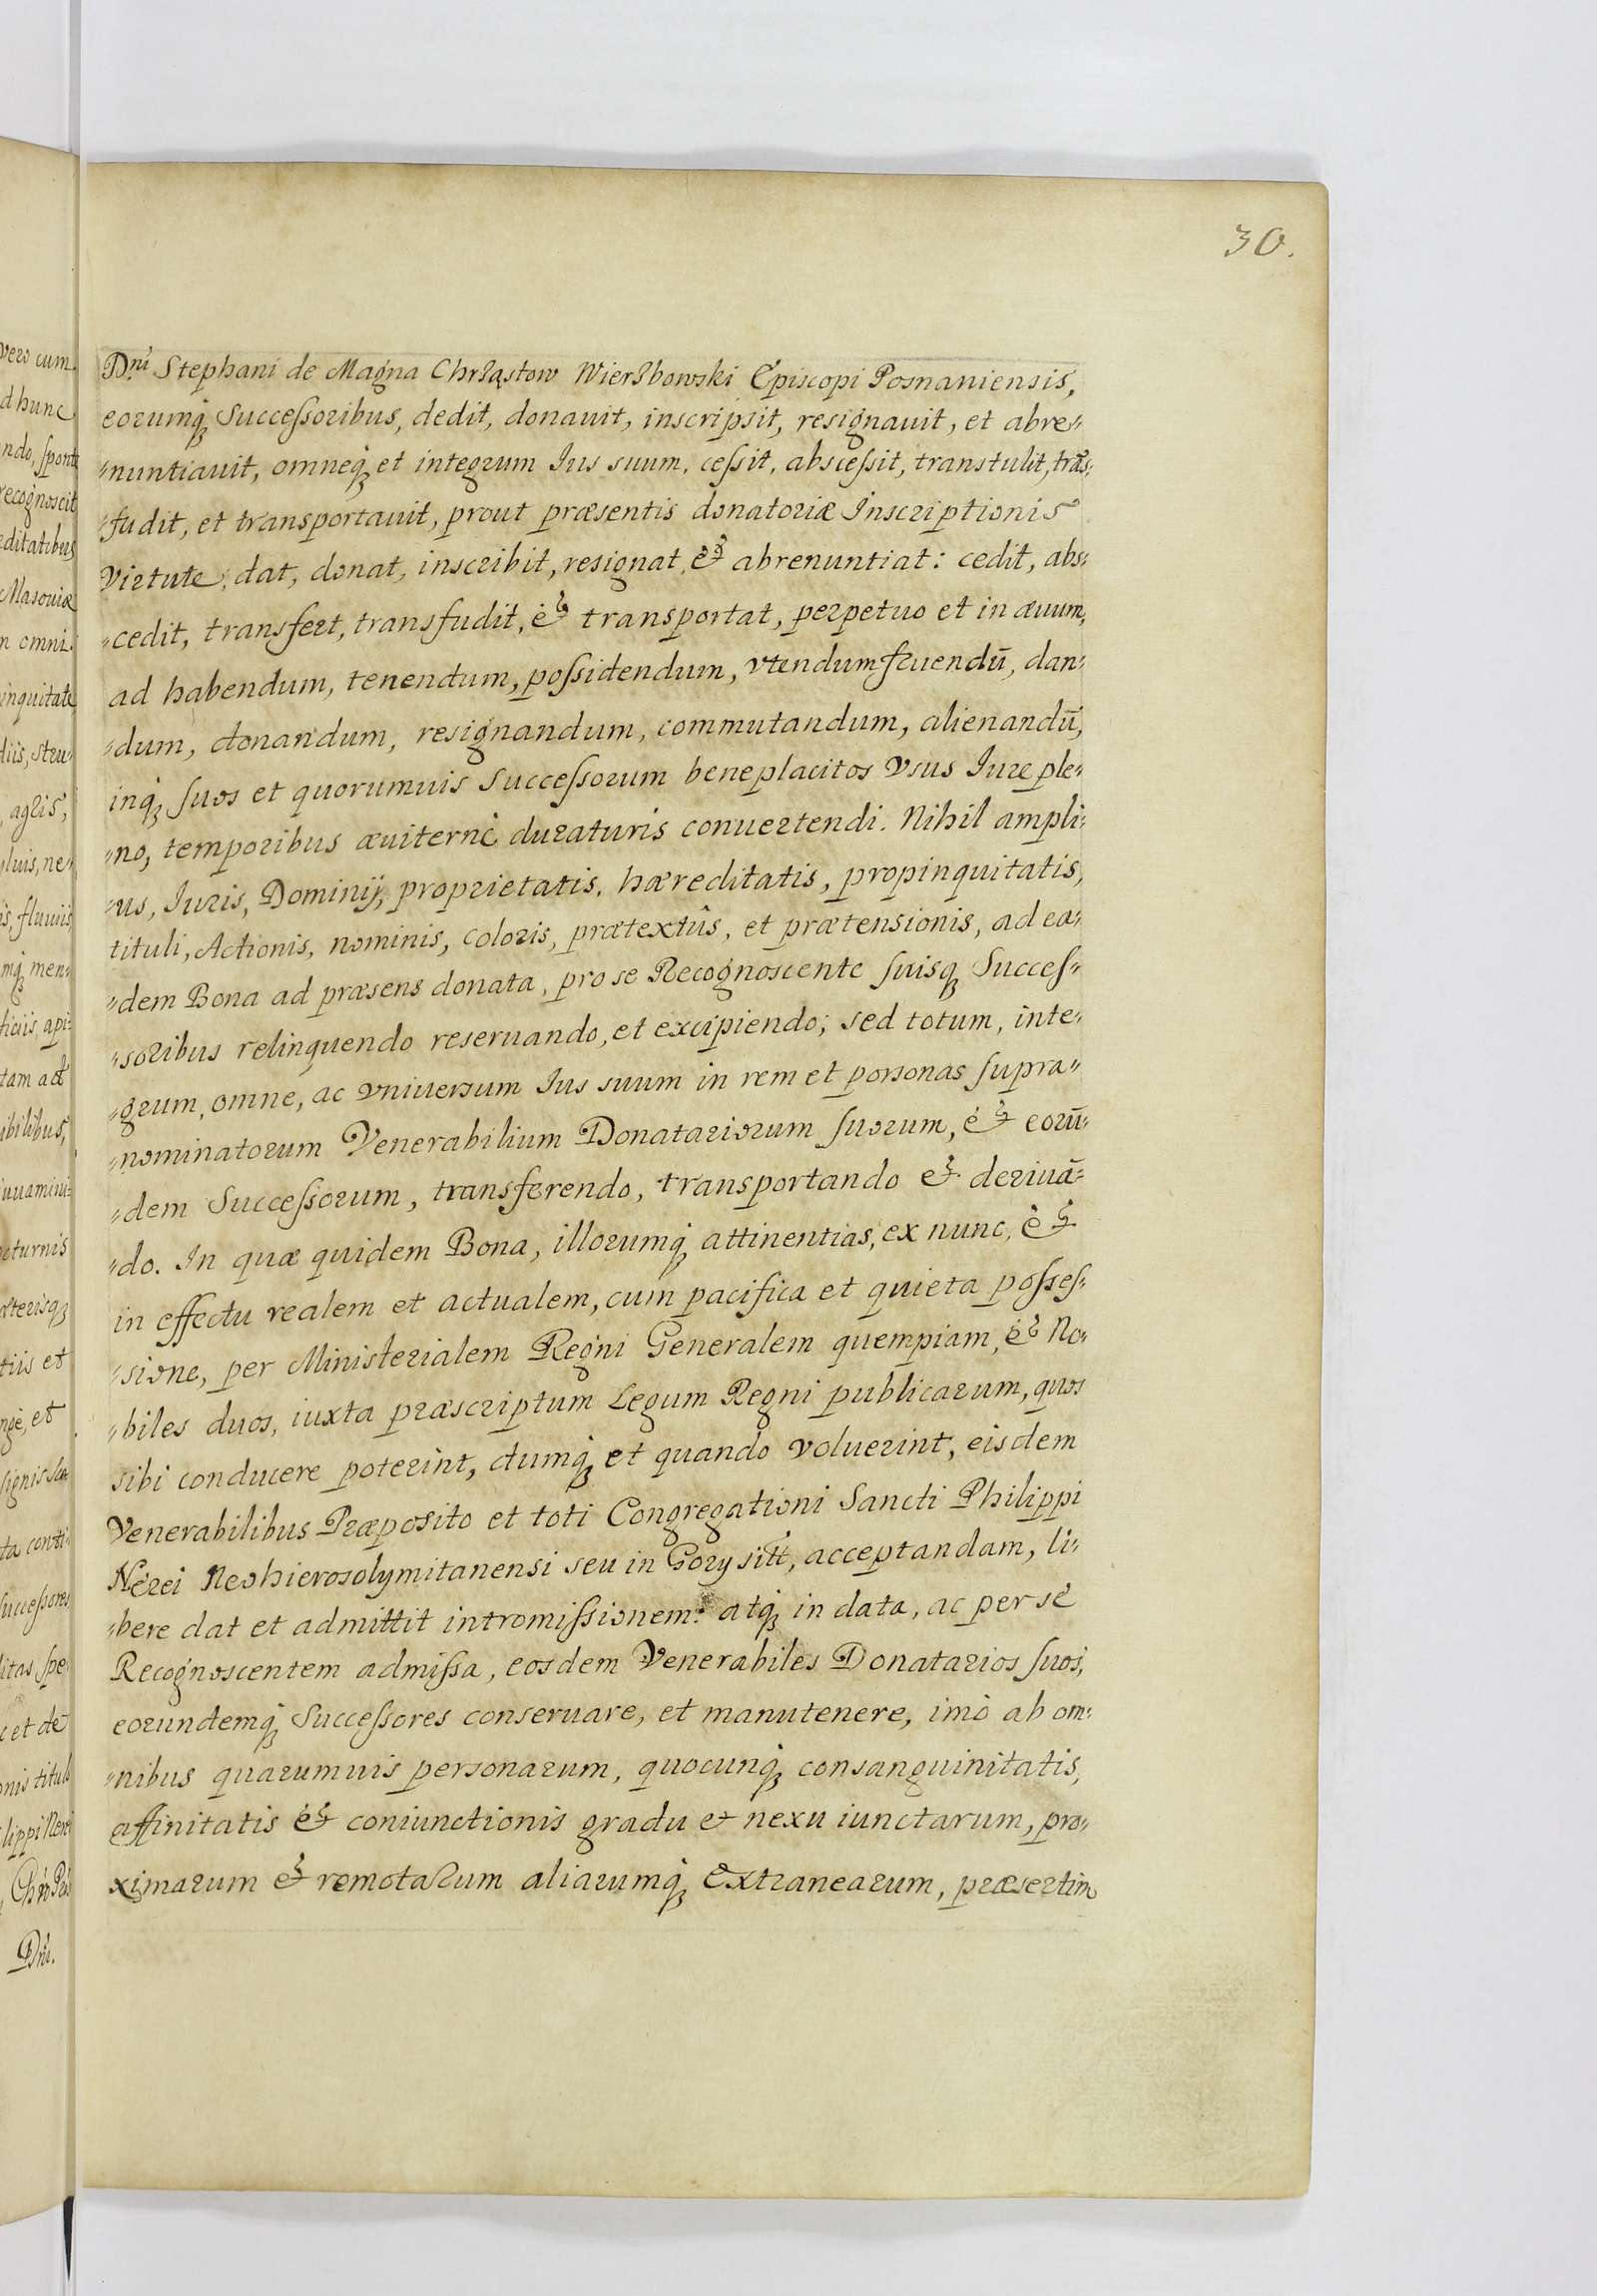 30.
Dni Stephani de Magna Chrząstow Wierzbowski Episcopi Posnaniensis,
eorumq; Succeſsoribus, dedit, donauit, inscripsit, resignauit, et abre„
„nuntiauit, omneq; et integrum Ius suum, ceſsit, absceſsit, transtulit, trãs„
„fudit, et transportauit, prout præsentis donatoriæ Inscriptionis
Virtute, dat, donat, inscribit, resignat, & abrenuntiat: cedit, abs„
„cedit, transfert, transfudit, & transportat, perpetuo et in æuum,
ad habendum, tenendum, poſsidendum, vtendumfruendũ, dan„
„dum, donandum, resignandum, commutandum, alienandũ,
inq; ſuos et quorumuis Succeſsorum beneplacitos Vsus Iure ple„
„no, temporibus æuiternè duraturis conuertendi. Nihil ampli„
„us, Iuris, Dominij, proprietatis, hæreditatis, propinquitatis,
tituli, Actionis, nominis, coloris, prætextûs, et prætensionis, ad ea„
„dem Bona ad præsens donata, pro se Recognoscente ſuisq; Succeſ„
„soribus relinquendo reseruando, et excipiendo; sed totum, inte„
„grum, omne, ac vniuersum Ius suum in rem et personas ſupra„
„nominatorum Venerabilium Donatariorum ſuorum, & eorũ„
„dem Succeſsorum, transferendo, transportando & deriuã„
„do. In quæ quidem Bona, illorumq; attinentias, ex nunc, &
in effectu realem et actualem, cum pacifica et quieta poſseſ„
„sione, per Ministerialem Regni Generalem quempiam, & No„
„biles duos, iuxta præscriptum Legum Regni publicarum, quos
sibi conducere poterint, dumq; et quando voluerint, eisdem
Venerabilibus Præposito et toti Congregationi Sancti Philippi
Nerei Neohierosolymitanensi seu in Gory sitt, acceptandam, li„
„bere dat et admittit intromiſsionem: atq; in data, ac per se
Recognoscentem admiſsa, eosdem Venerabiles Donatarios ſuos,
eorundemq; Succeſsores conseruare, et manutenere, imò ab om„
„nibus quarumuis personarum, quocunq; consanguinitatis,
affinitatis & coniunctionis gradu et nexu iunctarum, pro„
ximarum & remotarum aliarumq; extranearum, præsertim